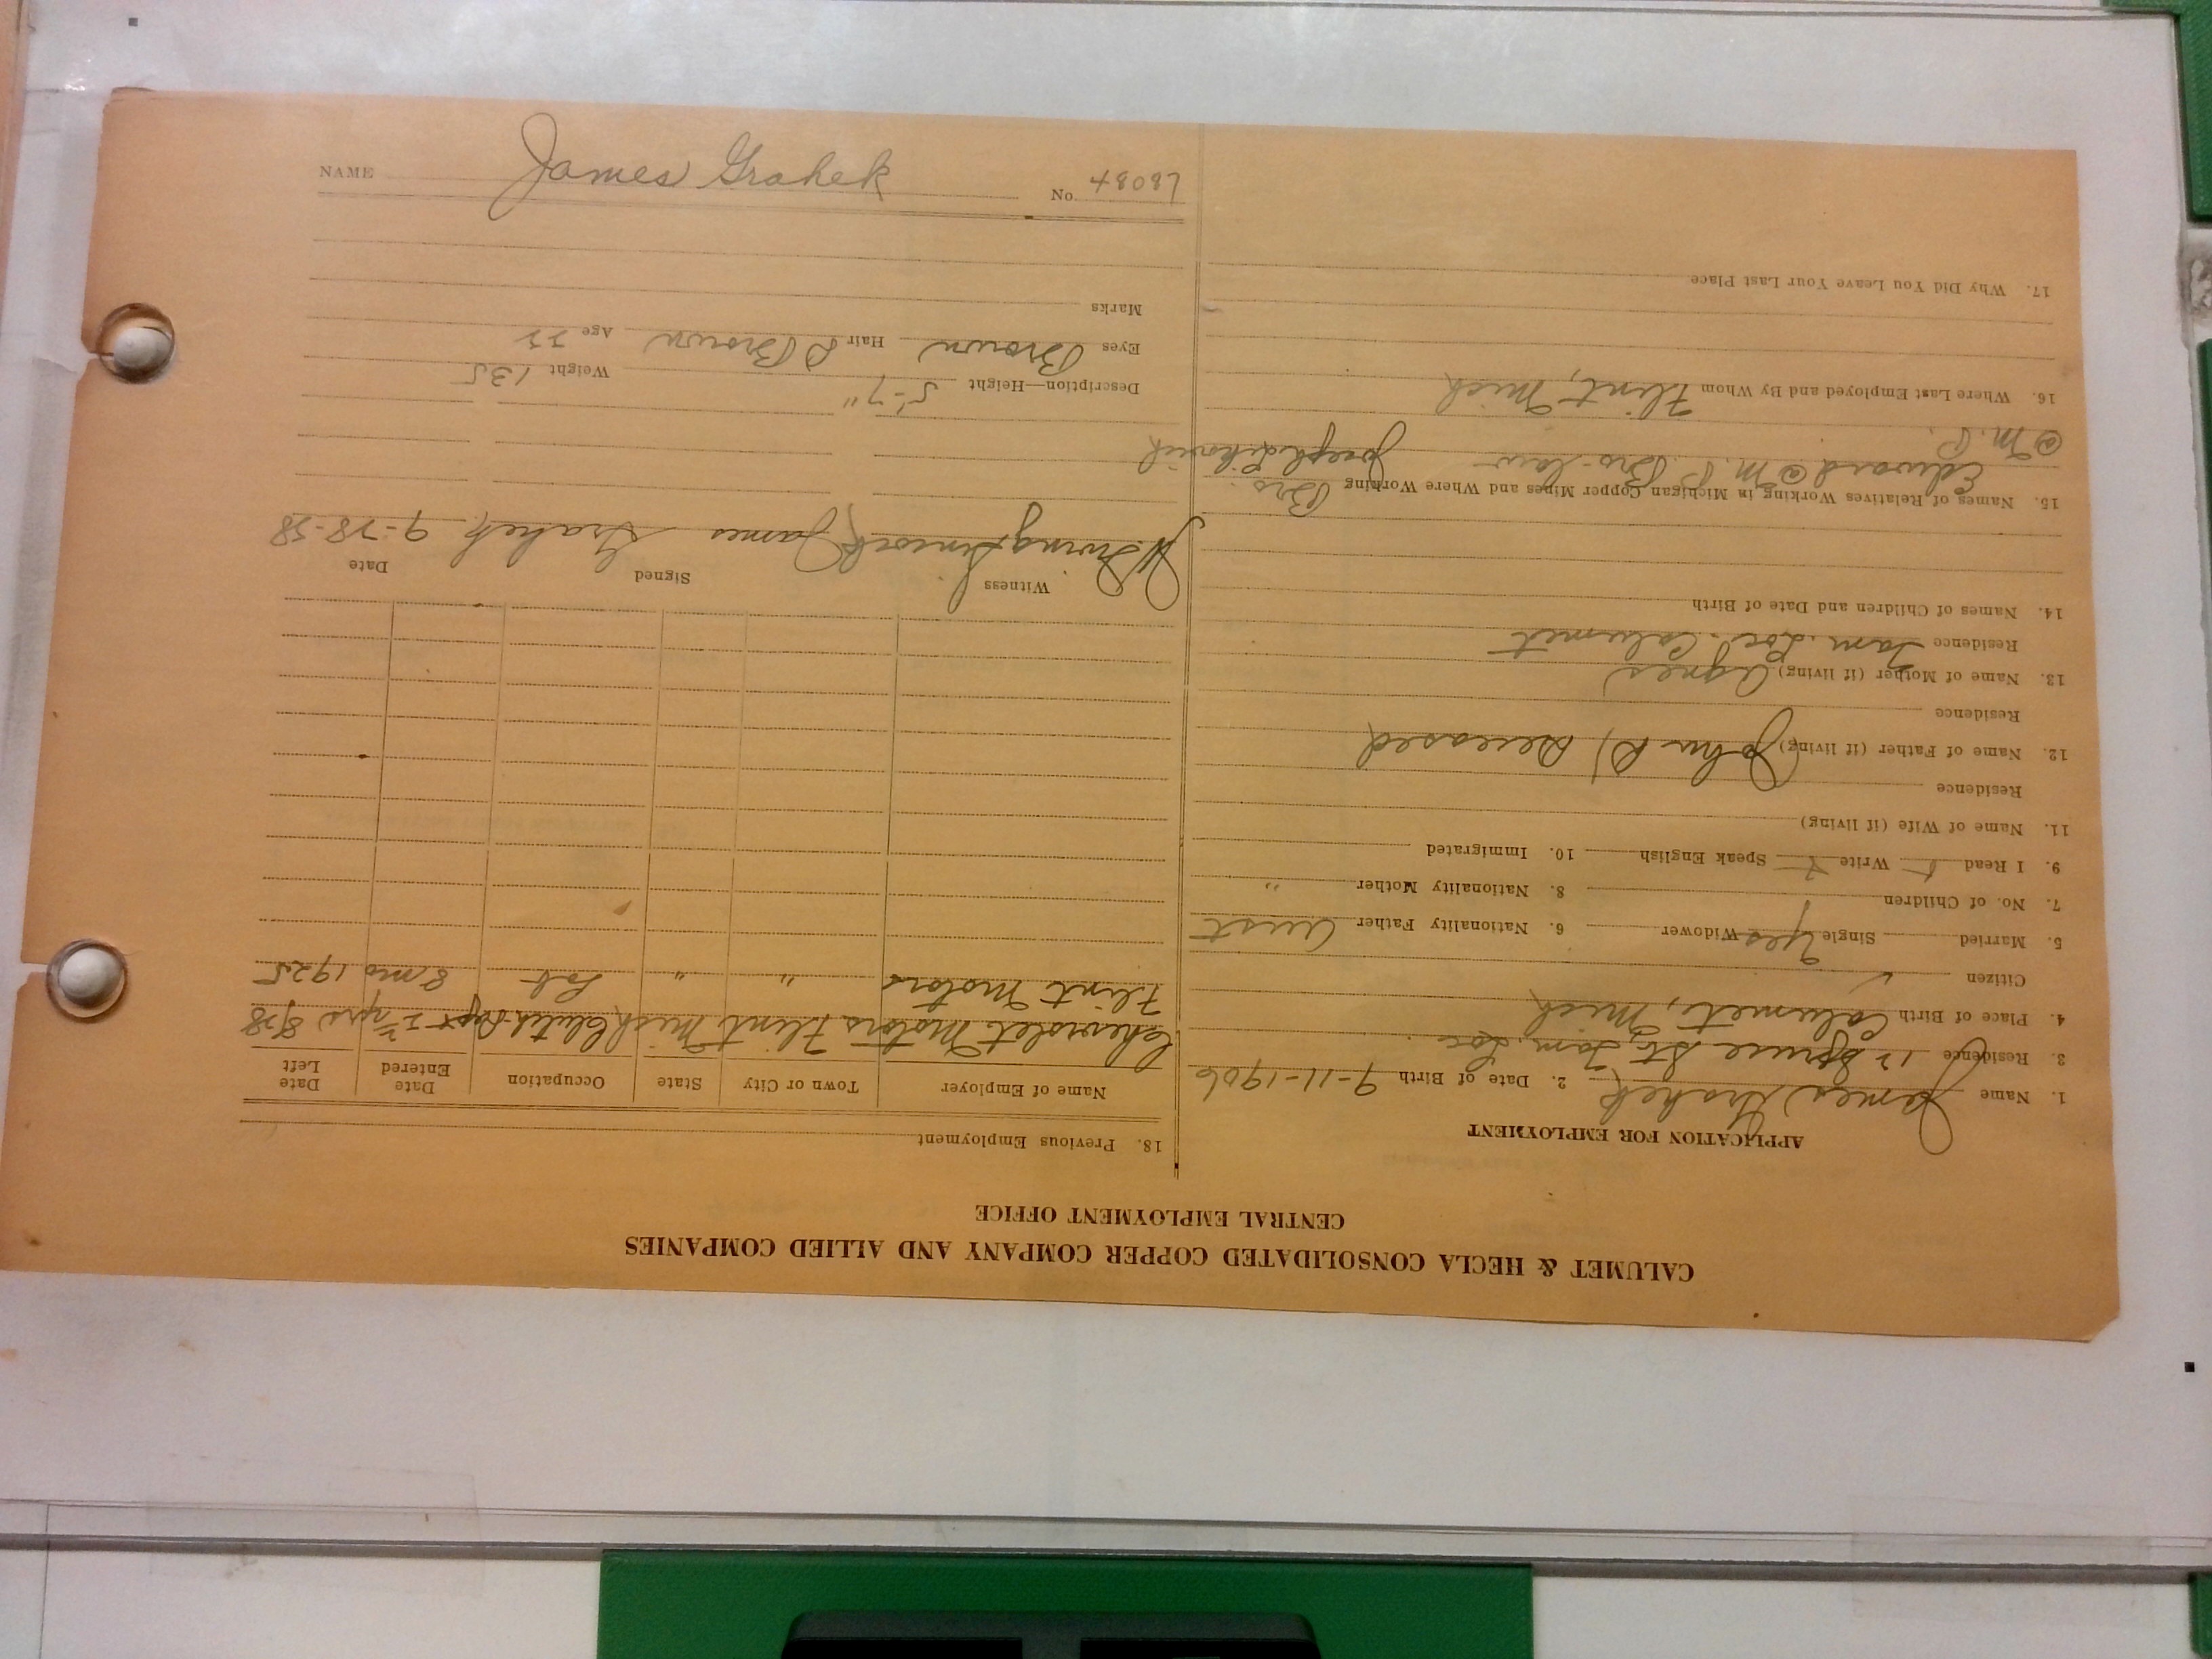 NAME James Grahek No. 48087
CALUMET & HECLA CONSOLIDATED COPPER COMPANY AND ALLIED COMPANIES
CENTRAL EMPLOYMENT OFFICE
APPLICATION FOR EMPLOYMENT
1. Name James Grahek 2. Date of Birth 9-11-1906
3. Residence Spruce St. Tam. Loc.
4. Place of Birth Calumet, Mich
Citizen ✓
5. Married Single Yes Widower 6. Nationality Father Aust
7. No. of Children 8. Nationality Mother "
9. I Read Write Speak English 10. Immigrated
11. Name of Wife (if living)
Residence
12. Name of Father (if living) (John D) Deceased
Residence
13. Name of Mother (if living) Agnes
Residence Tam. Loc. Calumet
14. Names of Children and Date of Birth
15. Names of Relatives Working in Michigan Copper Mines and Where Working Bro.
Edward @ M.P. Bro-law Joseph
@ M.P.
16. Where Last Employed and By Whom Flint, Mich
17. Why Did You Leave Your Last Place
18. Previous Employment
Name of Employer Town or City State Occupation Date Entered Date Left
Chevrolet Motors Flint Mich Clutch Dept yrs 8/28
Flint Motors " " Lab 8 mo 1925
Witness Signed Date
James Grahek 9-28-28
Description—Height 5'-7" Weight 135
Eyes Brown Hair D Brown Age 22
Marks